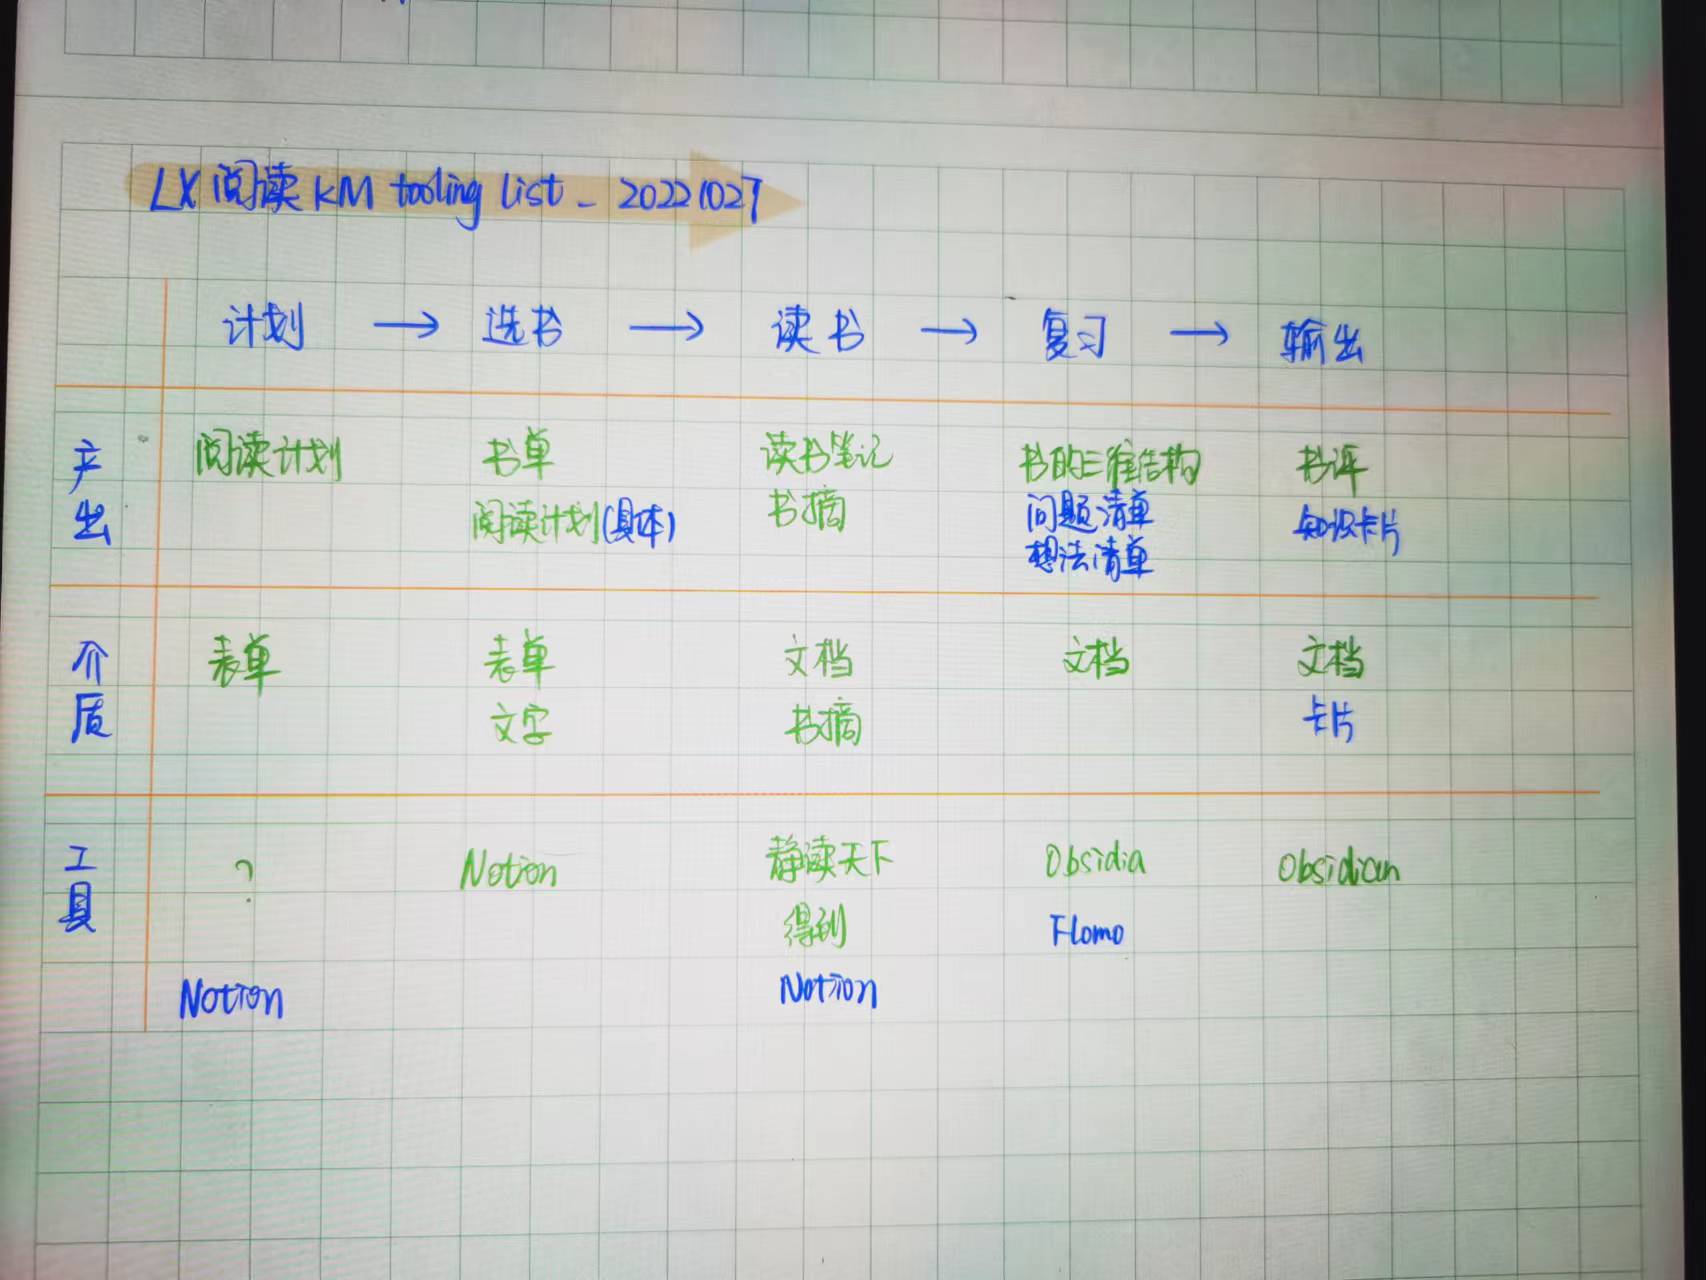 LX阅读KM tooling list - 20221027
计划 → 选书 → 读书 → 复习 → 输出
产出
阅读计划 书单 读书笔记 书的三维结构 书评
阅读计划(具体) 书摘 问题清单 知识卡片
想法清单
介质
表单 表单 文档 文档 文档
文字 书摘 卡片
工具
? Notion 静读天下 Obsidia Obsidian
得到 Flomo
Notion Notion